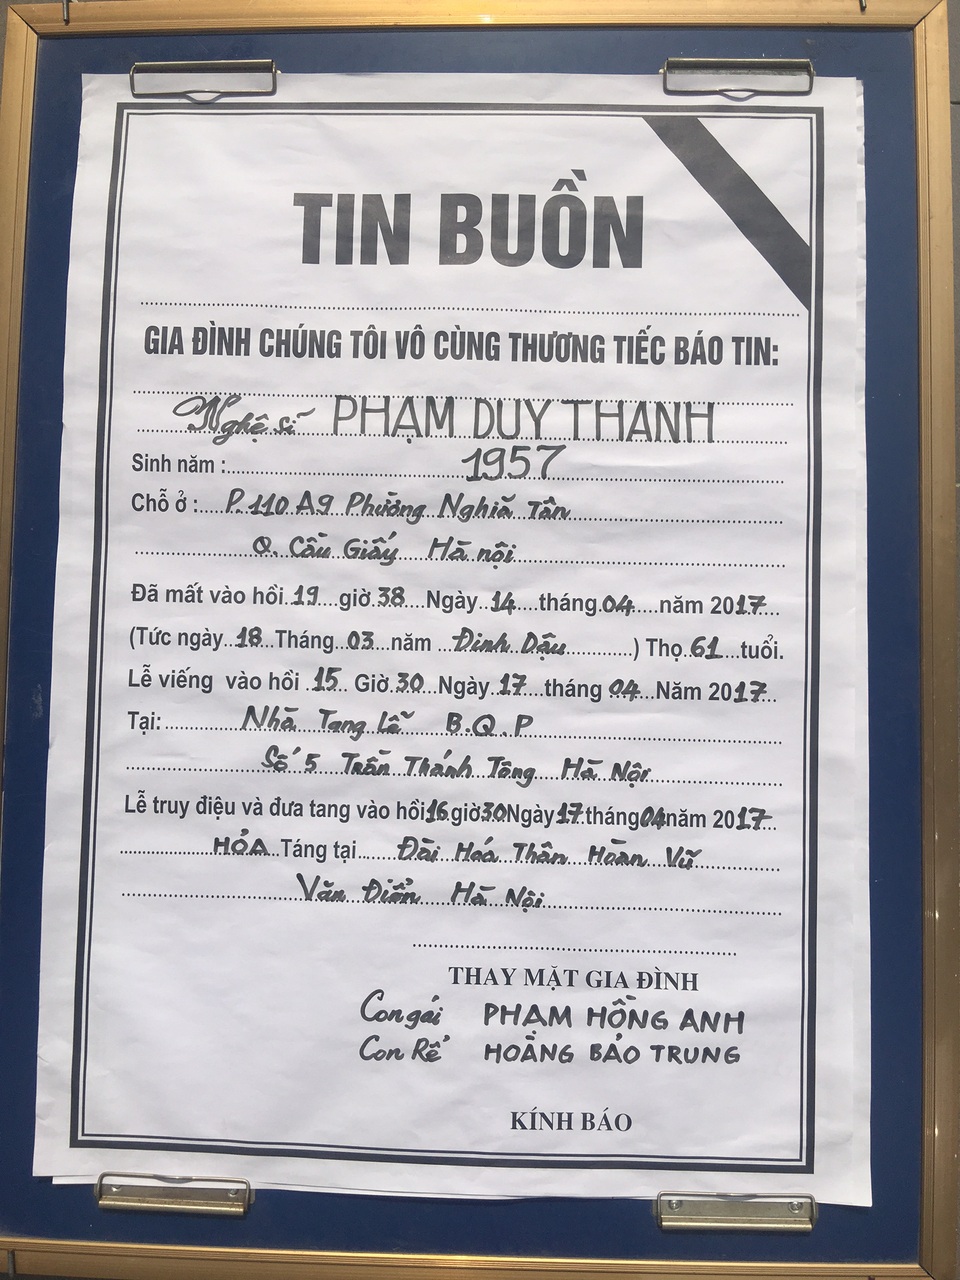 TIN BUỒN
GIA ĐÌNH CHÚNG TÔI VÔ CÙNG THƯƠNG TIẾC BÁO TIN:
Nghệ sĩ PHẠM DUY THANH
Sinh năm : 1957
Chỗ ở : P.110 A9 Phường Nghĩa Tân
Q. Cầu Giấy Hà nội
Đã mất vào hồi 19 giờ 38 Ngày 14 tháng 04 năm 2017
(Tức ngày 18 Tháng 03 năm Đinh Dậu ) Thọ 61 tuổi.
Lễ viếng vào hồi 15 Giờ 30 Ngày 17 tháng 04 Năm 2017
Tại: Nhà Tang Lễ B.Q.P
Số 5 Trần Thánh Tông Hà Nội
Lễ truy điệu và đưa tang vào hồi 16 giờ 30 Ngày 17 tháng 04 năm 2017
HỎA Táng tại Đài Hoá Thân Hoàn Vũ
Văn Điển Hà Nội
THAY MẶT GIA ĐÌNH
Con gái PHẠM HỒNG ANH
Con Rể HOÀNG BẢO TRUNG
KÍNH BÁO